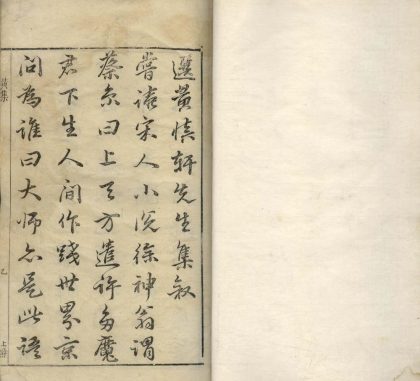 選黃慎軒先生集敘
嘗讀宋人小說徐神翁謂
蔡京曰上天方遣許多魔
君下生人間作踐世界京
問為誰曰大師亦是此語
黃集
乙
上